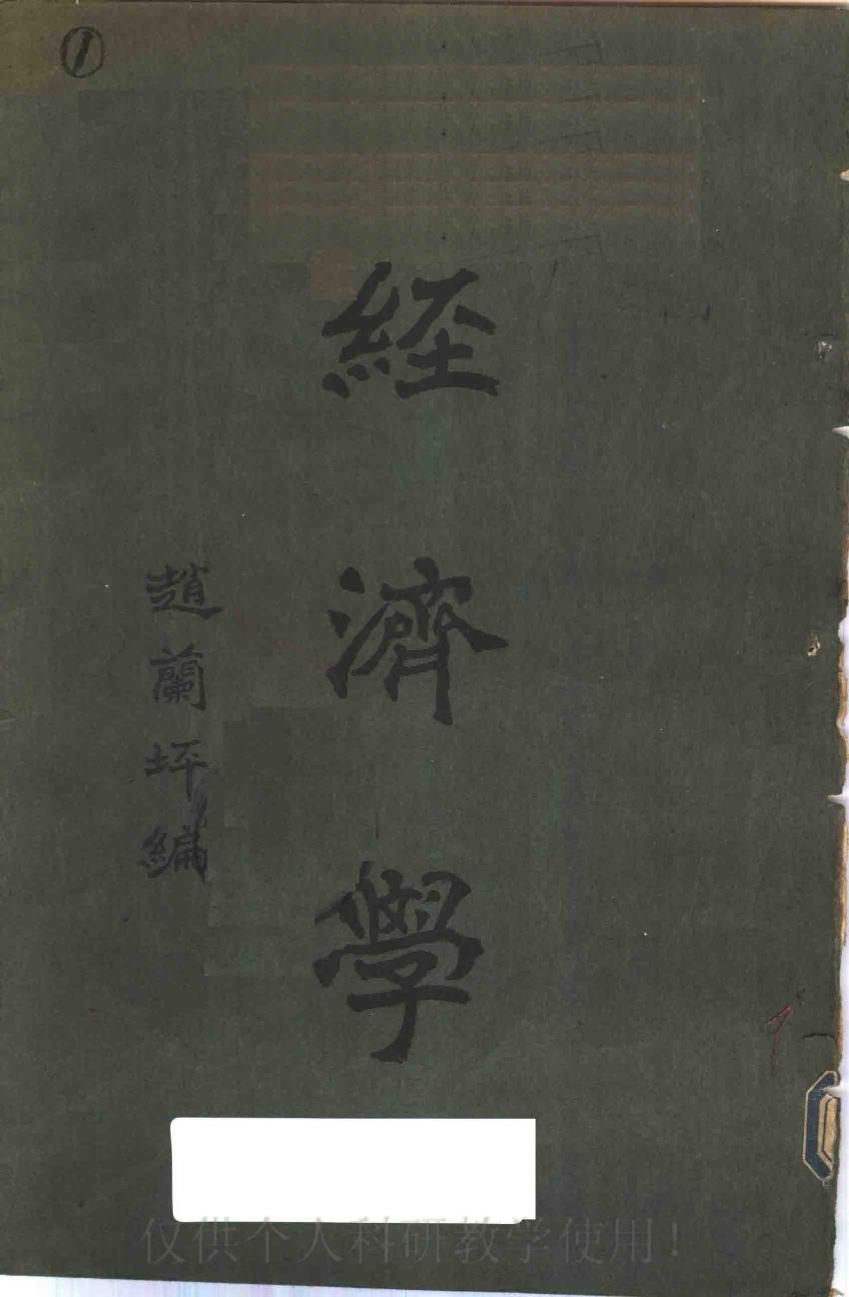 ①
經濟學
趙蘭坪編
仅供个人科研教学使用！